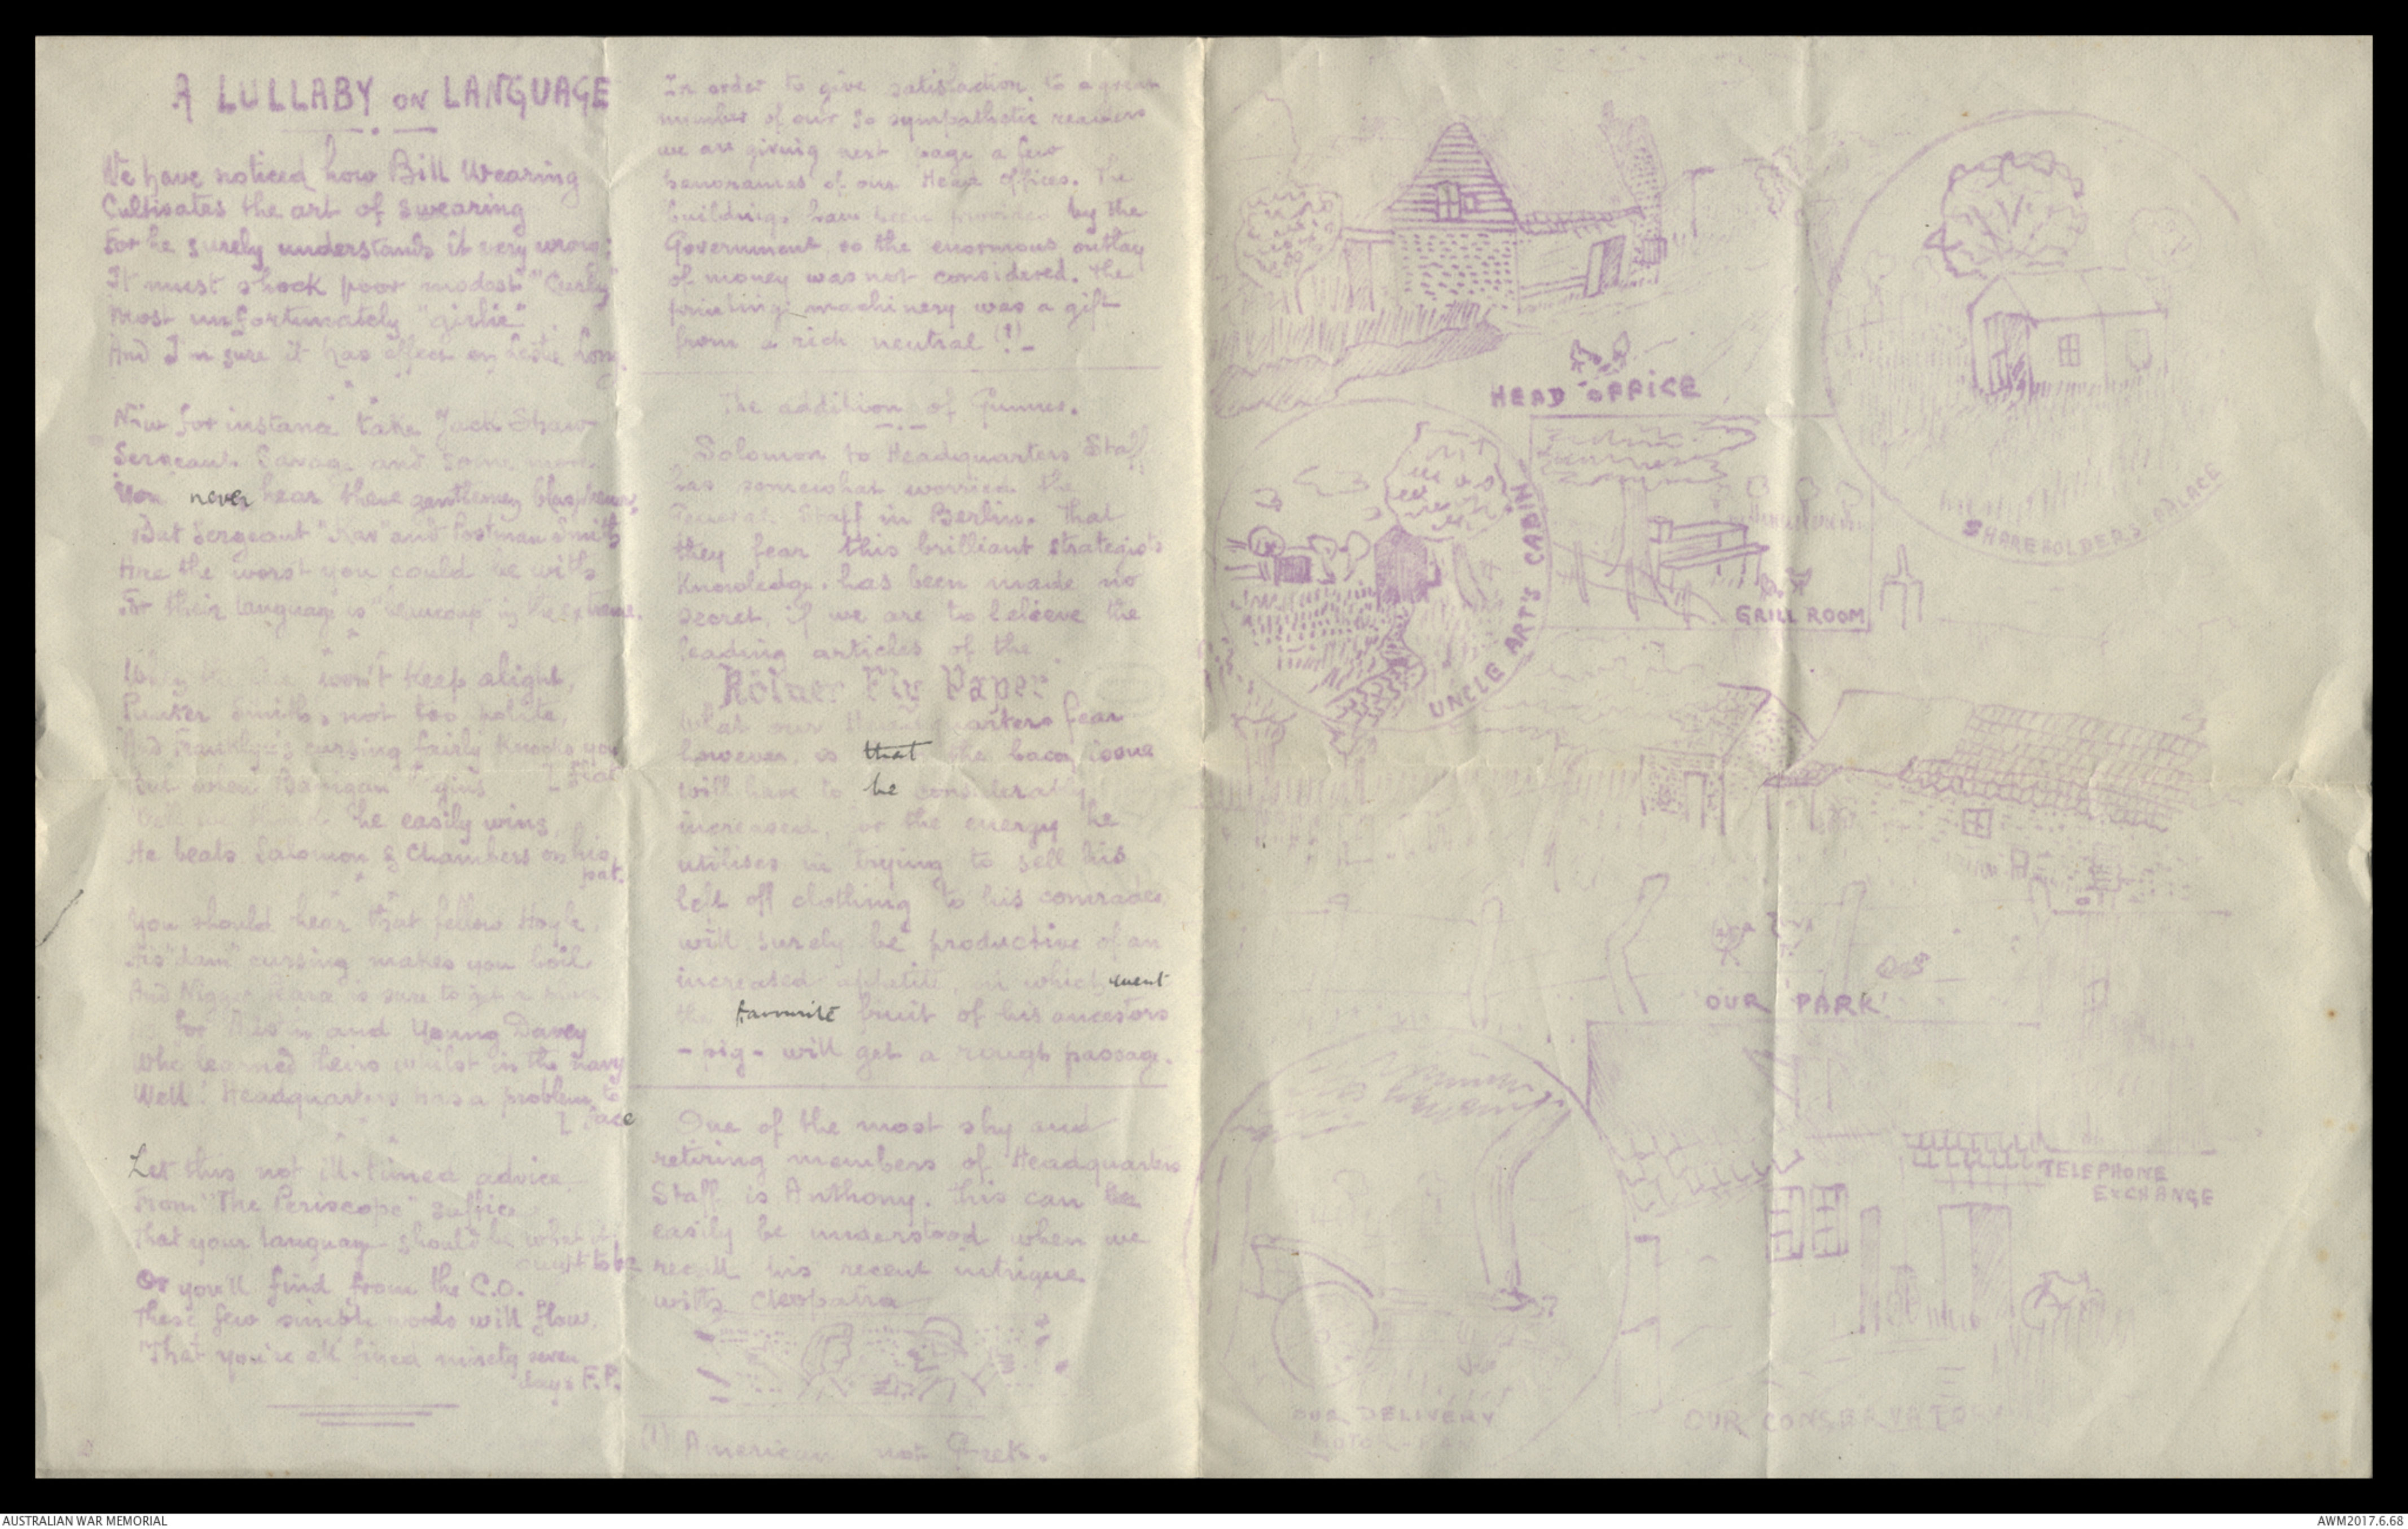 A LULLABY ON LANGUAGE
We have noticed how Bill Wearing
Cultivates the art of swearing
For he surely understands it very wrong;
It must shock poor modest "Curly"
Most unfortunately "girlie"
And I'm sure it has effect on Leslie Long.
Now for instance take Jack Shaw
Sergeant Savage and some more
You never hear these gentlemen blaspheme,
But Sergeant "Kav" and Postman Smith
Are the worst you could be with
For their language is "beaucoup" in the extreme.
won't keep alight,
Smith's not too polite,
And Franklyn's cursing fairly knocks you
[flat
But when Barrigan "'gins"
he easily wins,
He beats Salomon & Chambers on his
pat.
You should hear that fellow Hoyle,
His "dam" cursing makes you boil
And is sure to get a
For and Young Davey
Who learned theirs whilst in the navy
Well! Headquarters has a problem to
[face
Let this not ill-timed advice
From "The Periscope" suffice
That your language should be what it
ought to be
Or you'll find from the C.O.
These few simple words will flow,
"That you're all fined ninety seven
days F.P.
In order to give satisfaction to a great
number of our so sympathetic readers
we are giving next page a few
panoramas of our Head Offices. The
buildings have been provided by the
Government, so the enormous outlay
of money was not considered. The
printing machinery was a gift
from a rich neutral (1)_
The addition of Gunner.
Solomon to Headquarters Staff
has somewhat worried the
General Staff in Berlin. That
they fear this brilliant strategist's
knowledge, has been made no
secret, if we are to believe the
leading articles of the
Kölner Fly Paper
What our Headquarters fear
however, is that the bacon issue
will have to be considerably
increased, as the energy he
utilises in trying to sell his
left off clothing to his comrades,
will surely be productive of an
increased appetite, in which event
the favourite fruit of his ancestors
- pig - will get a rough passage.
One of the most shy and
retiring members of Headquarters
Staff is Anthony. This can be
easily be understood when we
recall his recent intrigue
with Cleopatra
(1) American not Greek.
HEAD OFFICE
SHAREHOLDERS PALACE
UNCLE ART'S CABIN
GRILL ROOM
OUR PARK
TELEPHONE
EXCHANGE
OUR DELIVERY
OUR CONSERVATO
AUSTRALIAN WAR MEMORIAL
AWM2017.6.68